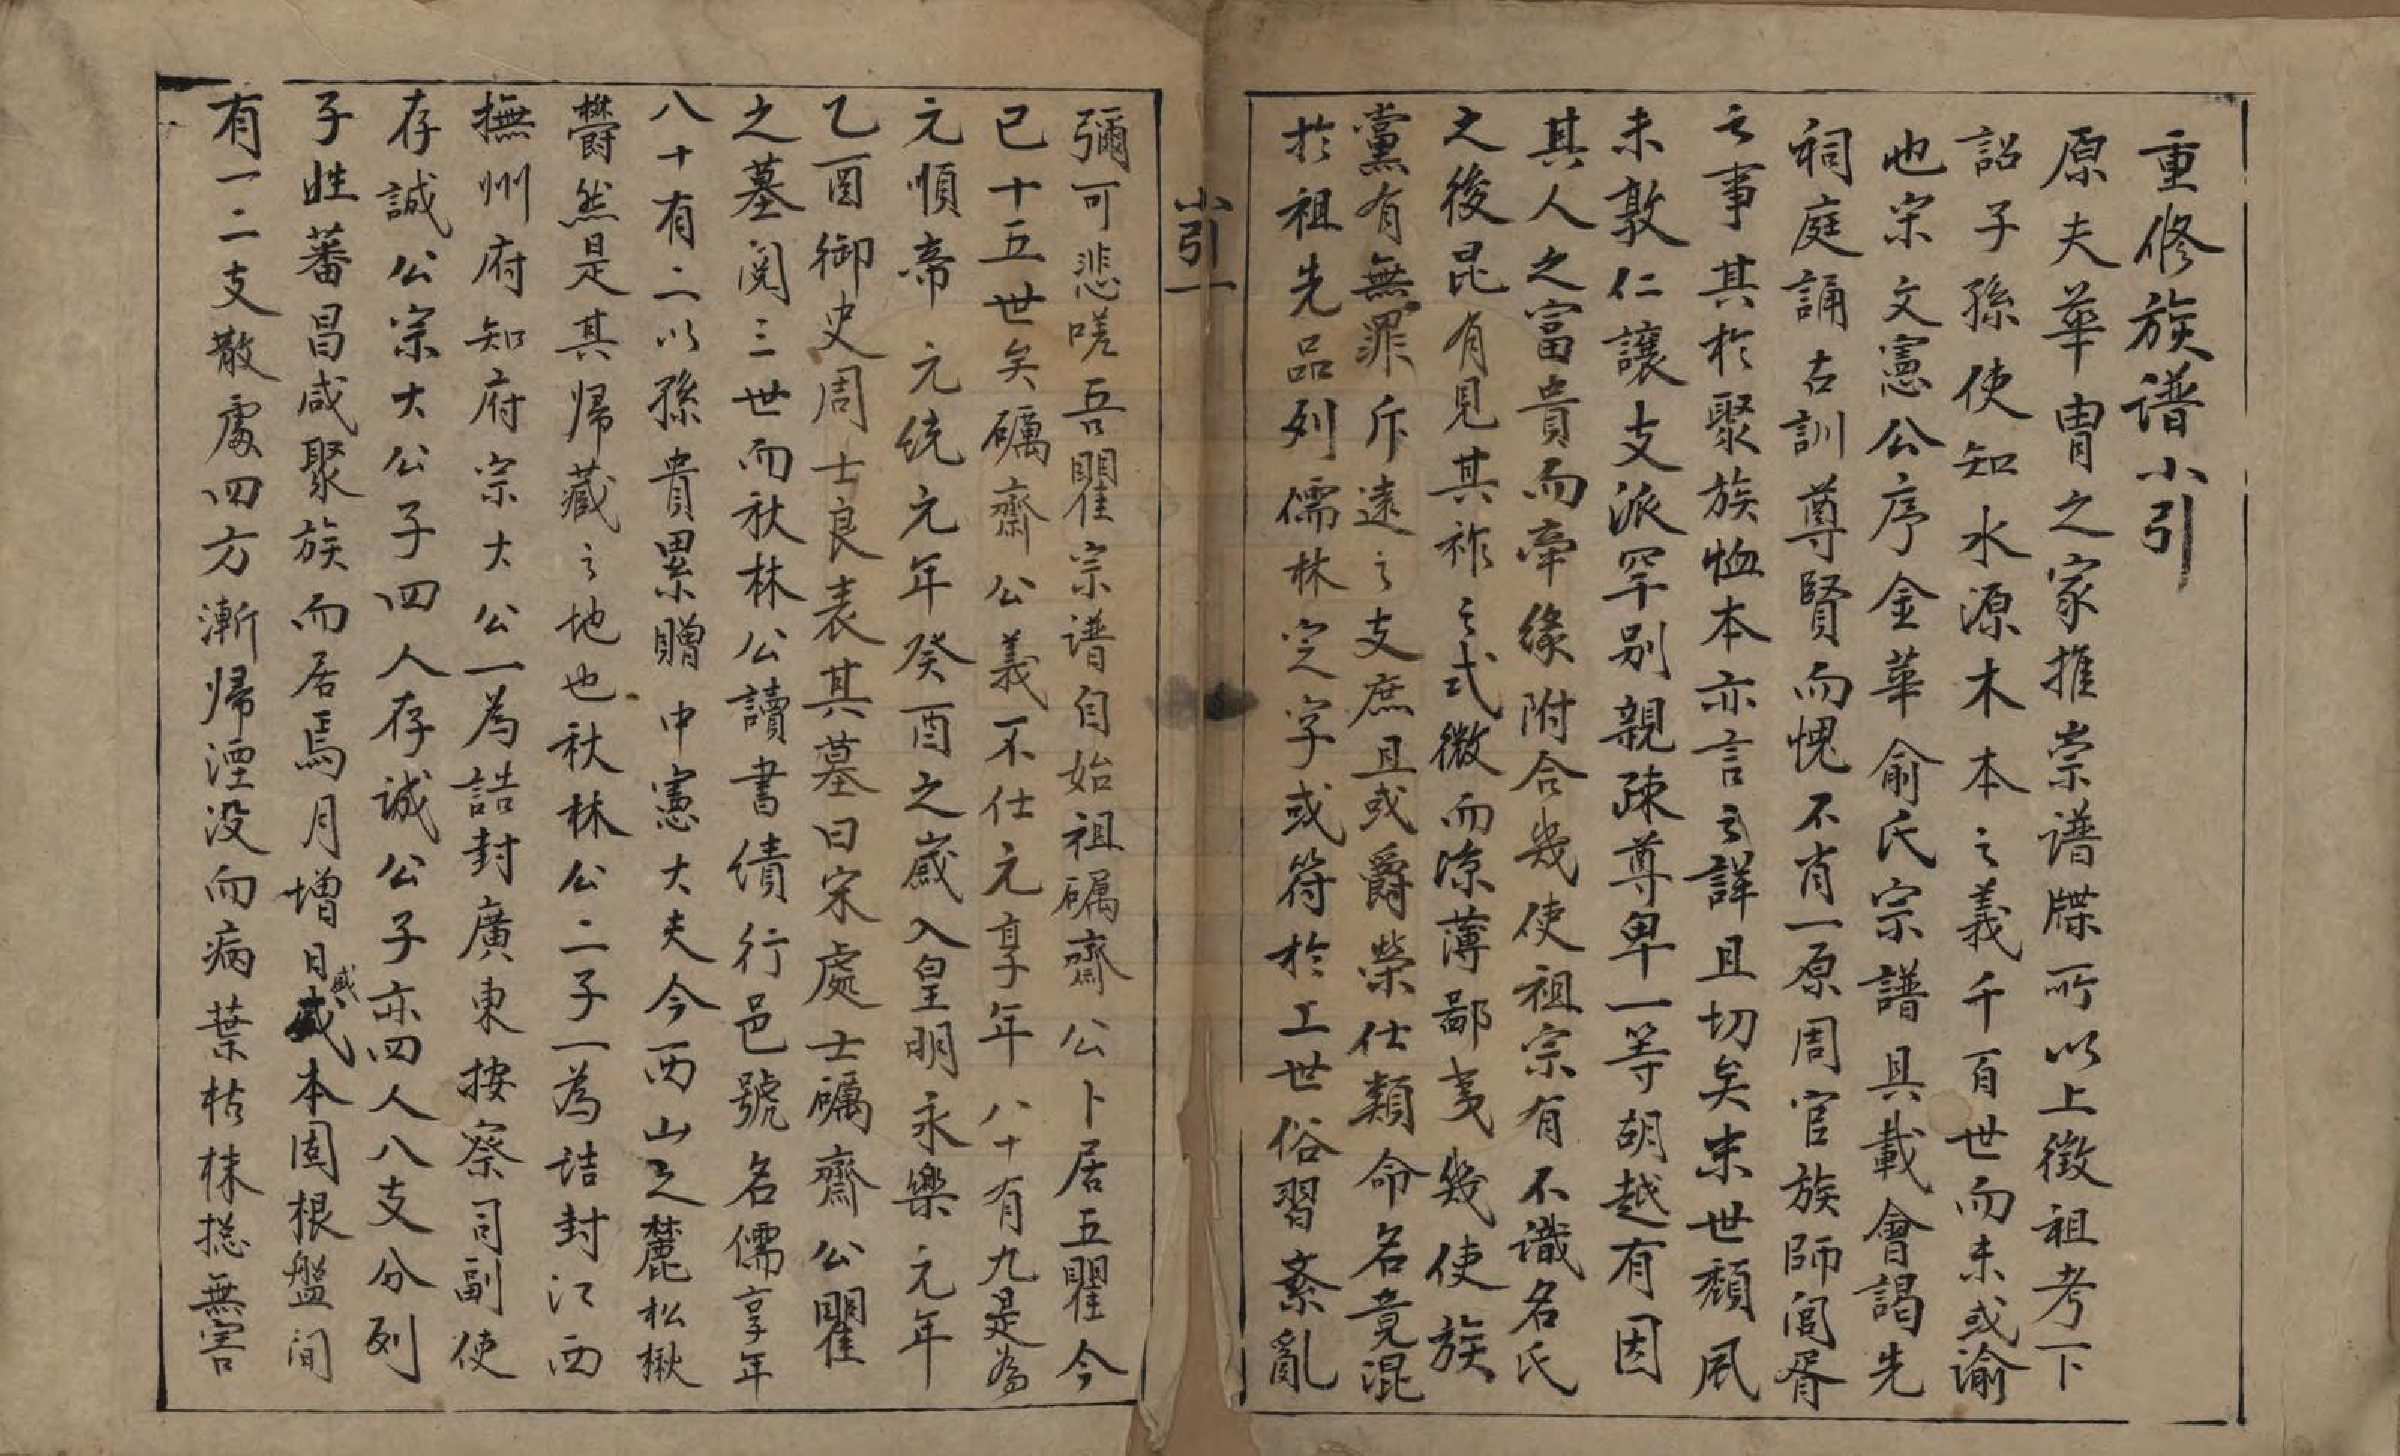 重修族谱小引
原夫華胄之家推崇谱牒所以上徵祖考下
詔子孫使知水源木本之義千百世而未或谕
也宋文憲公序金華俞氏宗譜具載會謁先
祠庭誦古訓尊賢而愧不肖一原周官族師閭胥
之事其於聚族恤本亦言之詳且切矣末世頹風
未敦仁讓支派罕别親疎尊卑一等胡越有因
其人之富貴而牽缘附合幾使祖宗有不識名氏
之後昆有見其祚之式微而凉薄鄙夷幾使族
黨有無罪斥遠之支庶且或爵榮仕類命名竟混
於祖先品列儒林定字或符於工世俗習紊亂
小引一
彌可悲嗟吾瞿宗谱自始祖礪齋公卜居五瞿今
已十五世矣礪齋公義不仕元享年八十有九是為
元順帝元统元年癸酉之歲入皇明永樂元年
乙酉御史周士良表其墓曰宋處士礪齋公瞿
之墓閲三世而秋林公讀書績行邑號名儒享年
八十有二以孫貴累贈中憲大夫今西山之麓松楸
欝然是其帰藏之地也秋林公二子一為诘封江西
撫州府知府宗大公一為誥封廣東按察司副使
存誠公宗大公子四人存诚公子亦四人八支分列
子姓蕃昌咸聚族而居焉月增日盛本固根盤间
有一二支散處四方漸帰湮没而病葉枯株揔無害